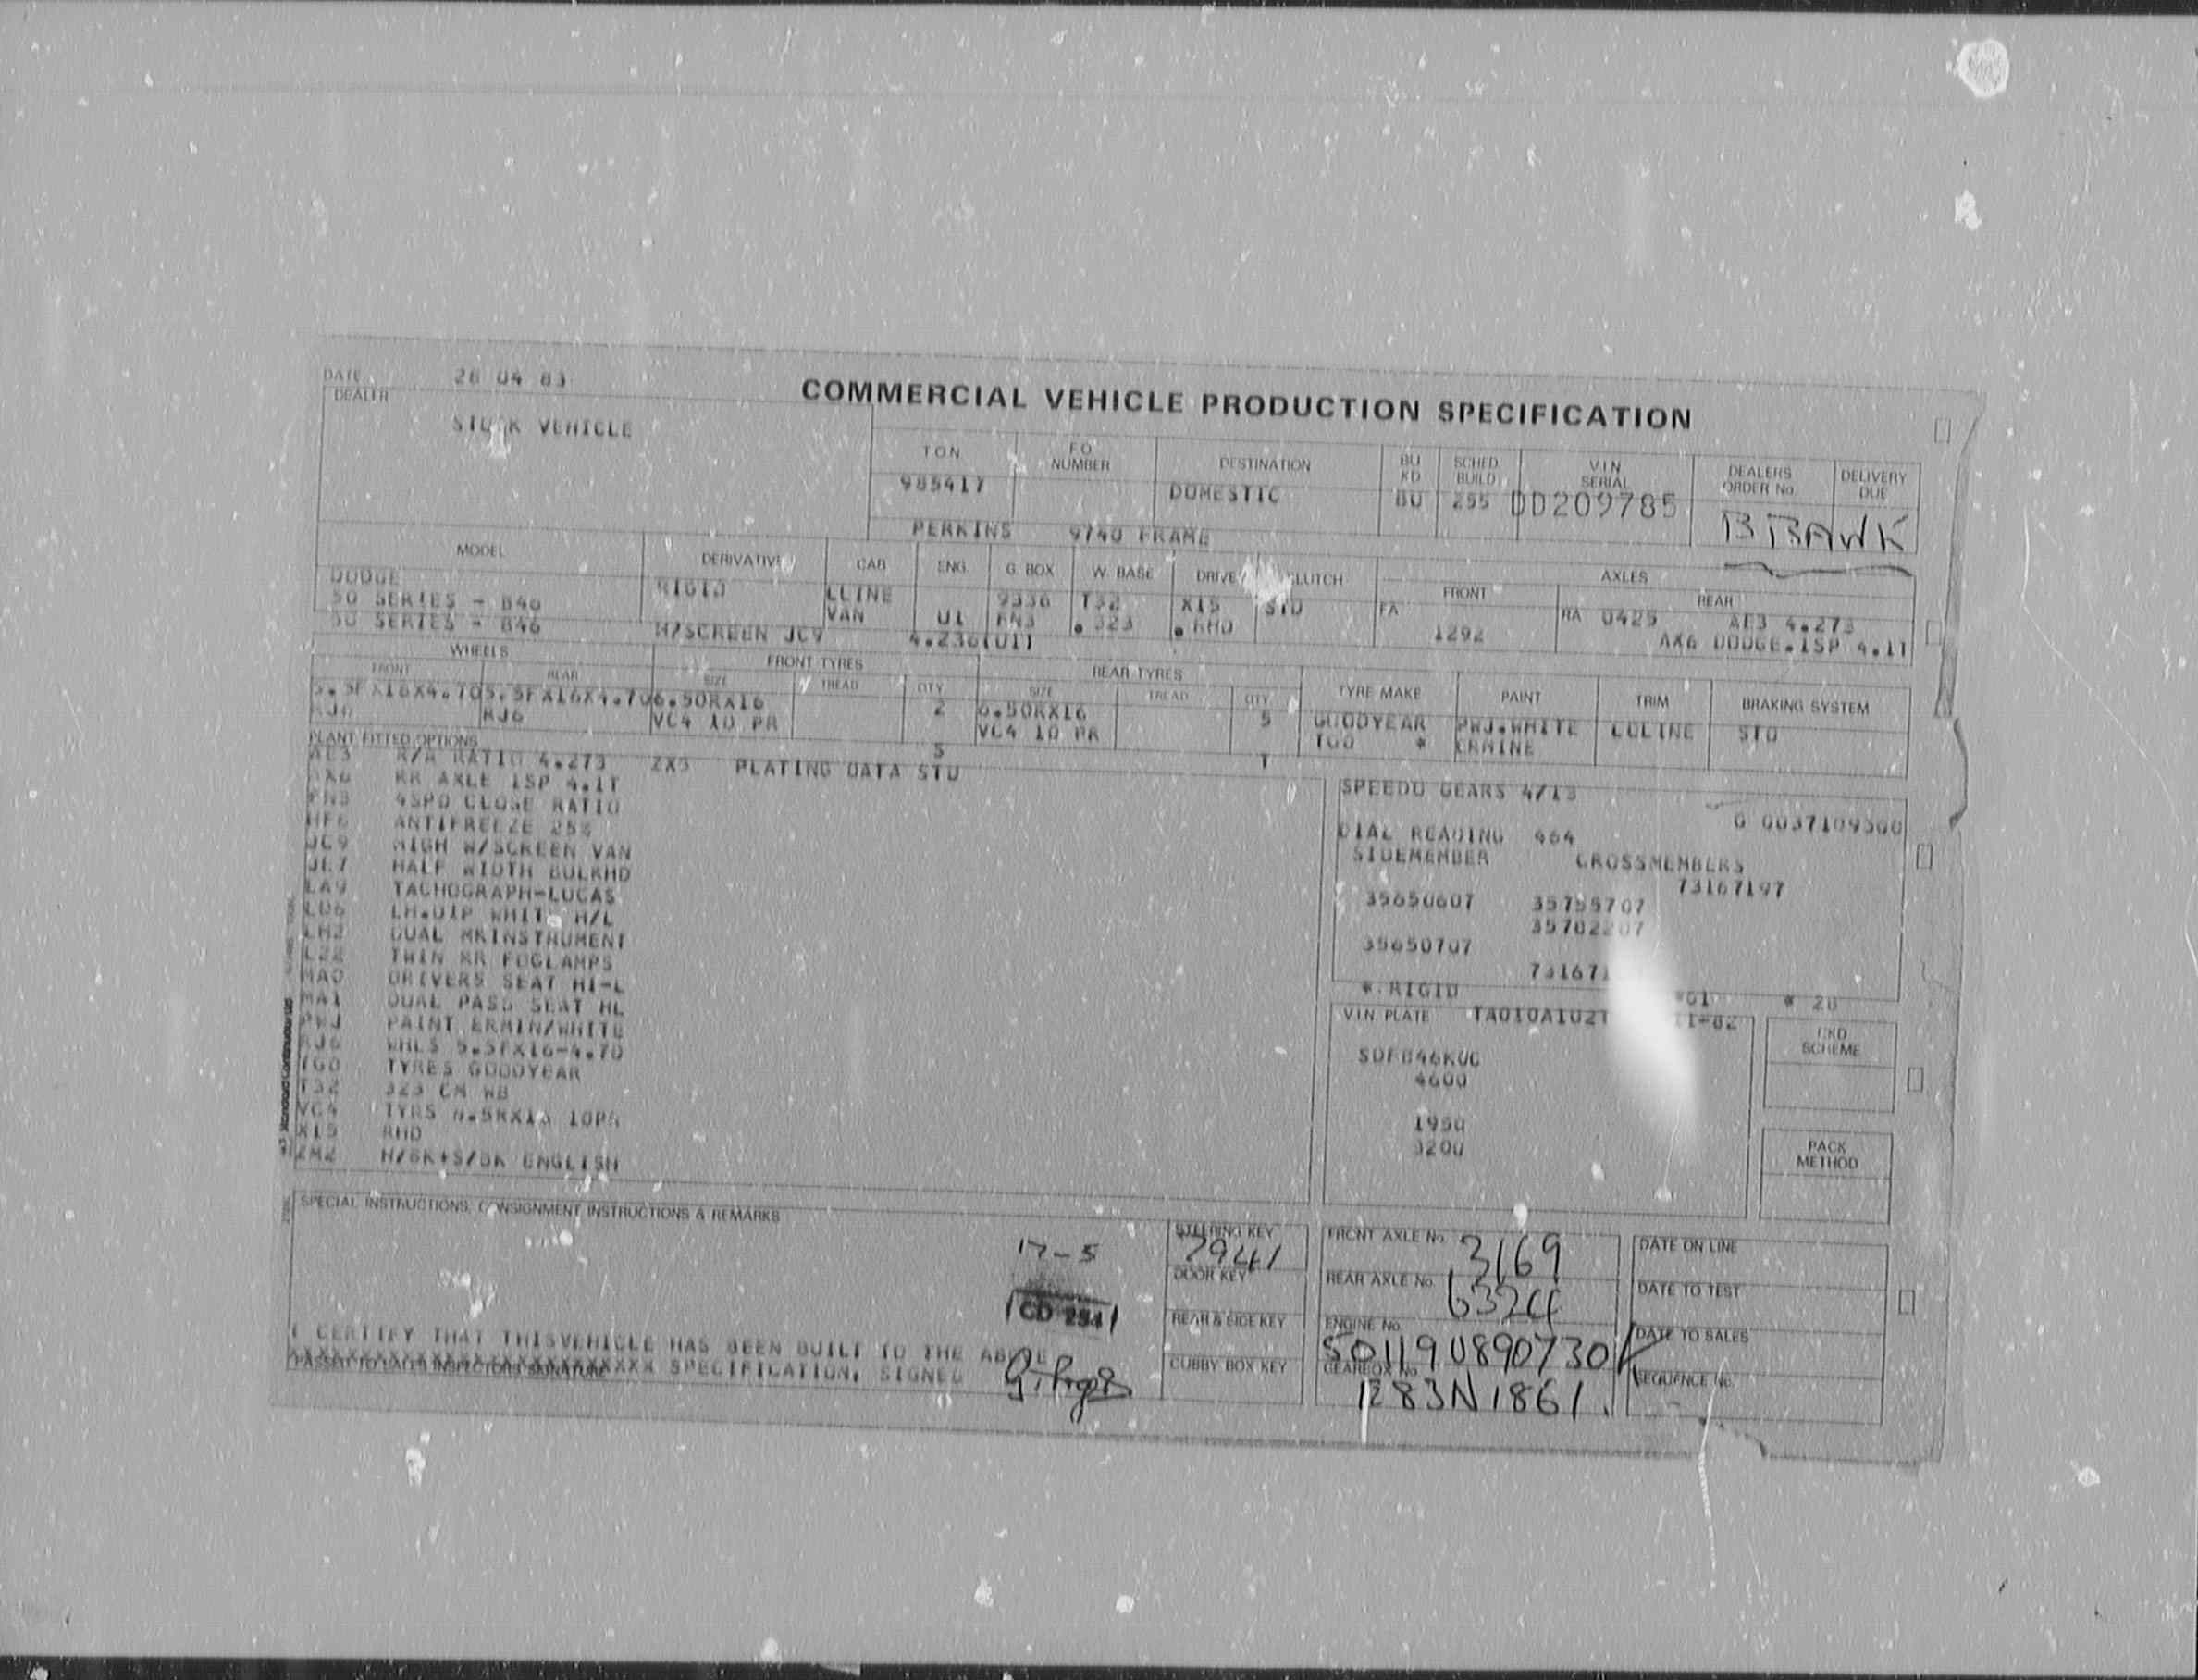 DATE 28 04 83
COMMERCIAL VEHICLE PRODUCTION SPECIFICATION
DEALER
VEHICLE
T.O.N. F.O. NUMBER DESTINATION BU KD SCHED. BUILD V.I.N. SERIAL DEALERS ORDER No. DELIVERY DUE
985417 DOMESTIC BU 255 DD209785
PERKINS 9740 FRAME
MODEL DERIVATIVE CAB ENG. G. BOX W. BASE DRIVE CLUTCH AXLES
FRONT REAR
DODGE RIGID LLINE 9336 T32 X15 STD FA RA 0425 AE3 4.273
50 SERIES - B46 VAN U1 FN3 .323 .RHD 1292 AX6 DODGE.1SP 4.1T
50 SERIES - B46 H/SCREEN JC9 4.236(U1)
WHEELS FRONT TYRES REAR TYRES TYRE MAKE PAINT TRIM BRAKING SYSTEM
FRONT REAR SIZE TREAD QTY SIZE TREAD QTY
5.5FX16X4.70 5.5FX16X4.70 6.50RX16 2 6.50RX16 5 GOODYEAR PWJ.WHITE LOLINE STD
RJ6 RJ6 VC4 10 PR VC4 10 PR TGO * ERMINE
S T
PLANT FITTED OPTIONS
AE3 R/A RATIO 4.273 ZX5 PLATING DATA STD
AX6 RR AXLE 1SP 4.1T
FN3 4SPD CLOSE RATIO
HF6 ANTIFREEZE 25%
JC9 HIGH W/SCREEN VAN
JE7 HALF WIDTH BULKHD
LA9 TACHOGRAPH-LUCAS
LD6 LH.DIP WHIT H/L
LH2 DUAL MKINSTRUMENT
LZ2 TWIN RR FOGLAMPS
MA0 DRIVERS SEAT HI-L
MA1 DUAL PASS SEAT HL
PWJ PAINT ERMIN/WHITE
RJ6 WHLS 5.5FX16-4.70
TGO TYRES GOODYEAR
T32 323 CM WB
VC4 TYRS 6.5RX16 10PR
X15 RHD
ZM2 H/BK+S/BK ENGLISH
SPEEDO GEARS 4/13
G 0037109500
DIAL READING 464
SIDEMEMBER CROSSMEMBERS
73167197
35650607 35755707
35702207
35650707
* RIGID * 28
V.I.N. PLATE
SDFB46K0C
4600
1950
3200
CKD SCHEME
PACK METHOD
SPECIAL INSTRUCTIONS, CONSIGNMENT INSTRUCTIONS & REMARKS
17-5
CD 254
I CERTIFY THAT THISVEHICLE HAS BEEN BUILT TO THE ABOVE
SPECIFICATION, SIGNED
PASSED TO SALES INSPECTORS SIGNATURE
STEERING KEY 7941
DOOR KEY
REAR & SIDE KEY
CUBBY BOX KEY
FRONT AXLE No. 3169
REAR AXLE No. 6324
ENGINE No.
GEARBOX No. 1283N1861.
DATE ON LINE
DATE TO TEST
DATE TO SALES
SEQUENCE No.